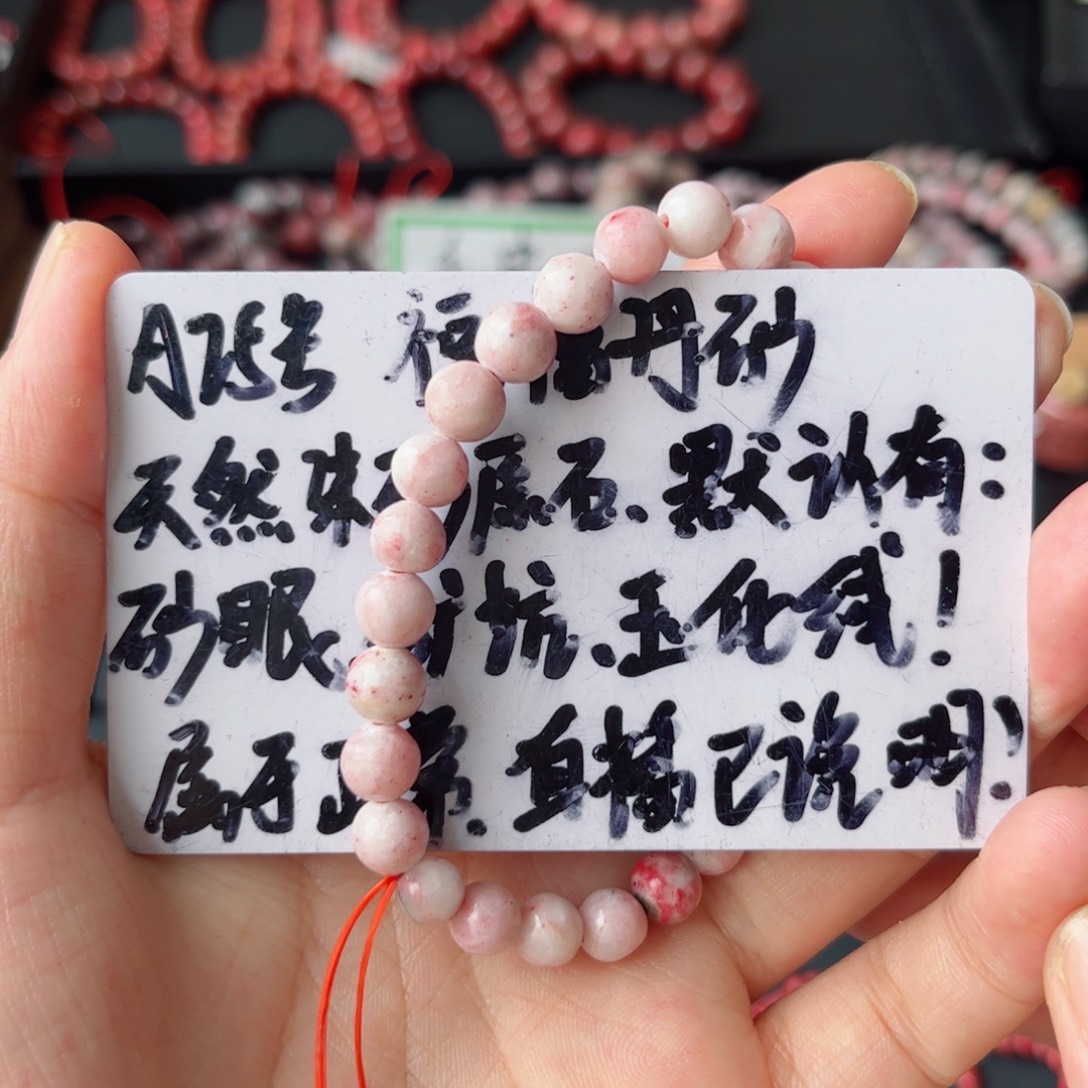 A75号 丹砂
天然朱砂原石.默认有:
砂眼、坑、玉化线!
属于正常.直播已说明!